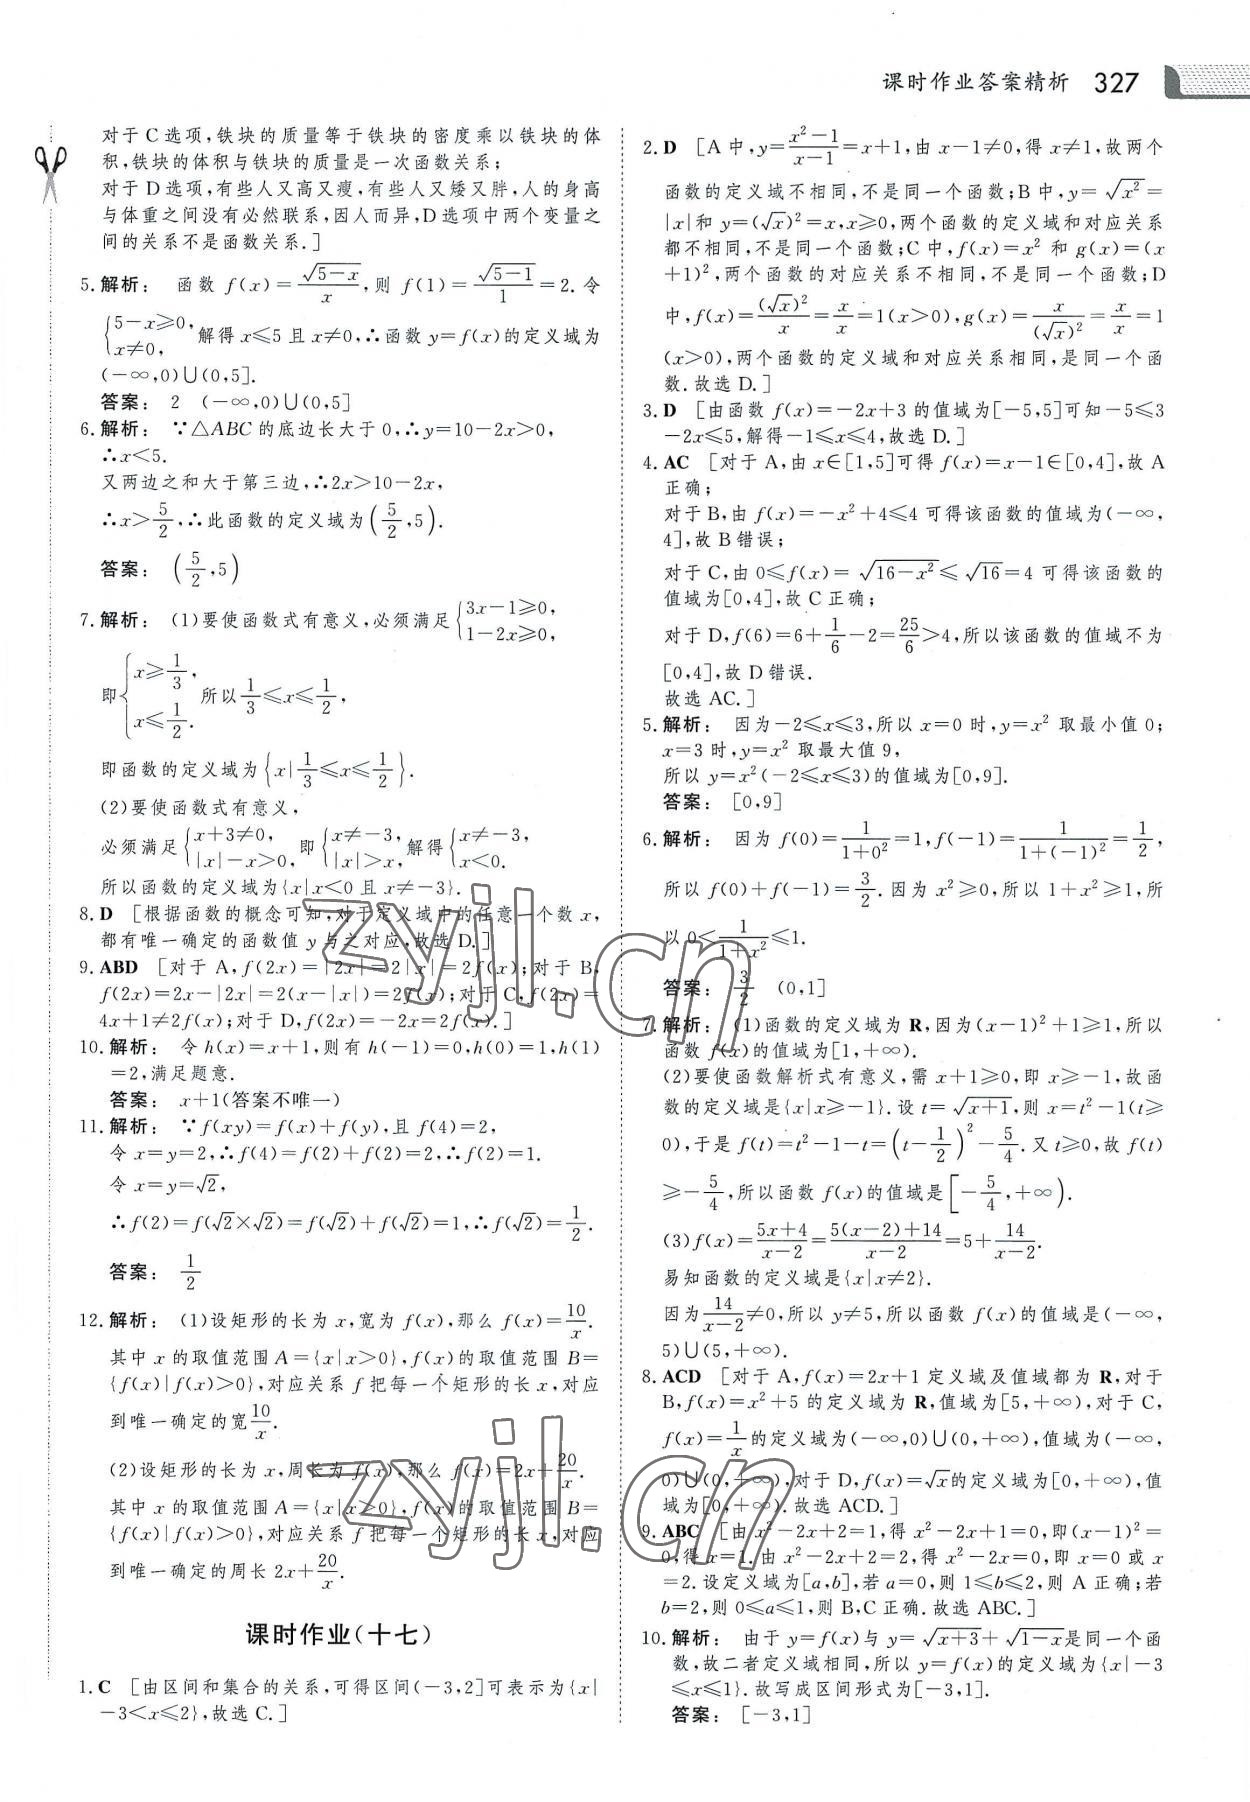 课时作业答案精析 327
对于C选项,铁块的质量等于铁块的密度乘以铁块的体
积,铁块的体积与铁块的质量是一次函数关系;
对于D选项,有些人又高又瘦,有些人又矮又胖,人的身高
与体重之间没有必然联系,因人而异,D选项中两个变量之
间的关系不是函数关系.]
5.解析: 函数 f(x)=√(5-x)/x,则 f(1)=√(5-1)/1=2.令
{5-x≥0, x≠0, 解得x≤5且x≠0,∴函数 y=f(x)的定义域为
(-∞,0)∪(0,5].
答案: 2 (-∞,0)∪(0,5]
6.解析: ∵△ABC的底边长大于0,∴y=10-2x>0,
∴x<5.
又两边之和大于第三边,∴2x>10-2x,
∴x>5/2,∴此函数的定义域为(5/2,5).
答案: (5/2,5)
7.解析: (1)要使函数式有意义,必须满足{3x-1≥0, 1-2x≥0,
即{x≥1/3, x≤1/2. 所以1/3≤x≤1/2,
即函数的定义域为{x|1/3≤x≤1/2}.
(2)要使函数式有意义,
必须满足{x+3≠0, |x|-x>0, 即{x≠-3, |x|>x, 解得{x≠-3, x<0.
所以函数的定义域为{x|x<0且x≠-3}.
8.D [根据函数的概念可知,对于定义域中的任意一个数x,
都有唯一确定的函数值y与之对应,故选D.]
9.ABD [对于A,f(2x)=|2x|=2|x|=2f(x);对于B,
f(2x)=2x-|2x|=2(x-|x|)=2f(x);对于C,f(2x)=
4x+1≠2f(x);对于D,f(2x)=-2x=2f(x).]
10.解析: 令h(x)=x+1,则有h(-1)=0,h(0)=1,h(1)
=2,满足题意.
答案: x+1(答案不唯一)
11.解析: ∵f(xy)=f(x)+f(y),且f(4)=2,
令x=y=2,∴f(4)=f(2)+f(2)=2,∴f(2)=1.
令x=y=√2,
∴f(2)=f(√2×√2)=f(√2)+f(√2)=1,∴f(√2)=1/2.
答案: 1/2
12.解析: (1)设矩形的长为x,宽为f(x),那么f(x)=10/x.
其中x的取值范围A={x|x>0},f(x)的取值范围B=
{f(x)|f(x)>0},对应关系f把每一个矩形的长x,对应
到唯一确定的宽10/x.
(2)设矩形的长为x,周长为f(x),那么f(x)=2x+20/x.
其中x的取值范围A={x|x>0},f(x)的取值范围B=
{f(x)|f(x)>0},对应关系f把每一个矩形的长x,对应
到唯一确定的周长2x+20/x.
课时作业(十七)
1.C [由区间和集合的关系,可得区间(-3,2]可表示为{x|
-3<x≤2},故选C.]
2.D [A中,y=(x²-1)/(x-1)=x+1,由x-1≠0,得x≠1,故两个
函数的定义域不相同,不是同一个函数;B中,y=√(x²)=
|x|和y=(√x)²=x,x≥0,两个函数的定义域和对应关系
都不相同,不是同一个函数;C中,f(x)=x² 和g(x)=(x
+1)²,两个函数的对应关系不相同,不是同一个函数;D
中,f(x)=(√x)²/x=x/x=1(x>0),g(x)=x/(√x)²=x/x=1
(x>0),两个函数的定义域和对应关系相同,是同一个函
数.故选D.]
3.D [由函数f(x)=-2x+3的值域为[-5,5]可知-5≤3
-2x≤5,解得-1≤x≤4,故选D.]
4.AC [对于A,由x∈[1,5]可得f(x)=x-1∈[0,4],故A
正确;
对于B,由f(x)=-x²+4≤4可得该函数的值域为(-∞,
4],故B错误;
对于C,由0≤f(x)=√(16-x²)≤√16=4可得该函数的
值域为[0,4],故C正确;
对于D,f(6)=6+1/6-2=25/6>4,所以该函数的值域不为
[0,4],故D错误.
故选AC.]
5.解析: 因为-2≤x≤3,所以x=0时,y=x²取最小值0;
x=3时,y=x²取最大值9,
所以y=x²(-2≤x≤3)的值域为[0,9].
答案: [0,9]
6.解析: 因为f(0)=1/(1+0²)=1,f(-1)=1/(1+(-1)²)=1/2,
所以f(0)+f(-1)=3/2.因为x²≥0,所以1+x²≥1,所
以0<1/(1+x²)≤1.
答案: 3/2 (0,1]
7.解析: (1)函数的定义域为R,因为(x-1)²+1≥1,所以
函数f(x)的值域为[1,+∞).
(2)要使函数解析式有意义,需x+1≥0,即x≥-1,故函
数的定义域是{x|x≥-1}.设t=√(x+1),则x=t²-1(t≥
0),于是f(t)=t²-1-t=(t-1/2)²-5/4.又t≥0,故f(t)
≥-5/4,所以函数f(x)的值域是[-5/4,+∞).
(3)f(x)=(5x+4)/(x-2)=(5(x-2)+14)/(x-2)=5+14/(x-2).
易知函数的定义域是{x|x≠2}.
因为14/(x-2)≠0,所以y≠5,所以函数f(x)的值域是(-∞,
5)∪(5,+∞).
8.ACD [对于A,f(x)=2x+1定义域及值域都为R,对于
B,f(x)=x²+5的定义域为R,值域为[5,+∞),对于C,
f(x)=1/x的定义域为(-∞,0)∪(0,+∞),值域为(-∞,
0)∪(0,+∞),对于D,f(x)=√x的定义域为[0,+∞),值
域为[0,+∞).故选ACD.]
9.ABC [由x²-2x+2=1,得x²-2x+1=0,即(x-1)²=
0,得x=1.由x²-2x+2=2,得x²-2x=0,即x=0或x
=2.设定义域为[a,b],若a=0,则1≤b≤2,则A正确;若
b=2,则0≤a≤1,所以B,C正确.故选ABC.]
10.解析: 由于y=f(x)与y=√(x+3)+√(1-x)是同一个函
数,故二者定义域相同,所以y=f(x)的定义域为{x|-3
≤x≤1}.故写成区间形式为[-3,1].
答案: [-3,1]
zyjl.cn
zyjl.cn